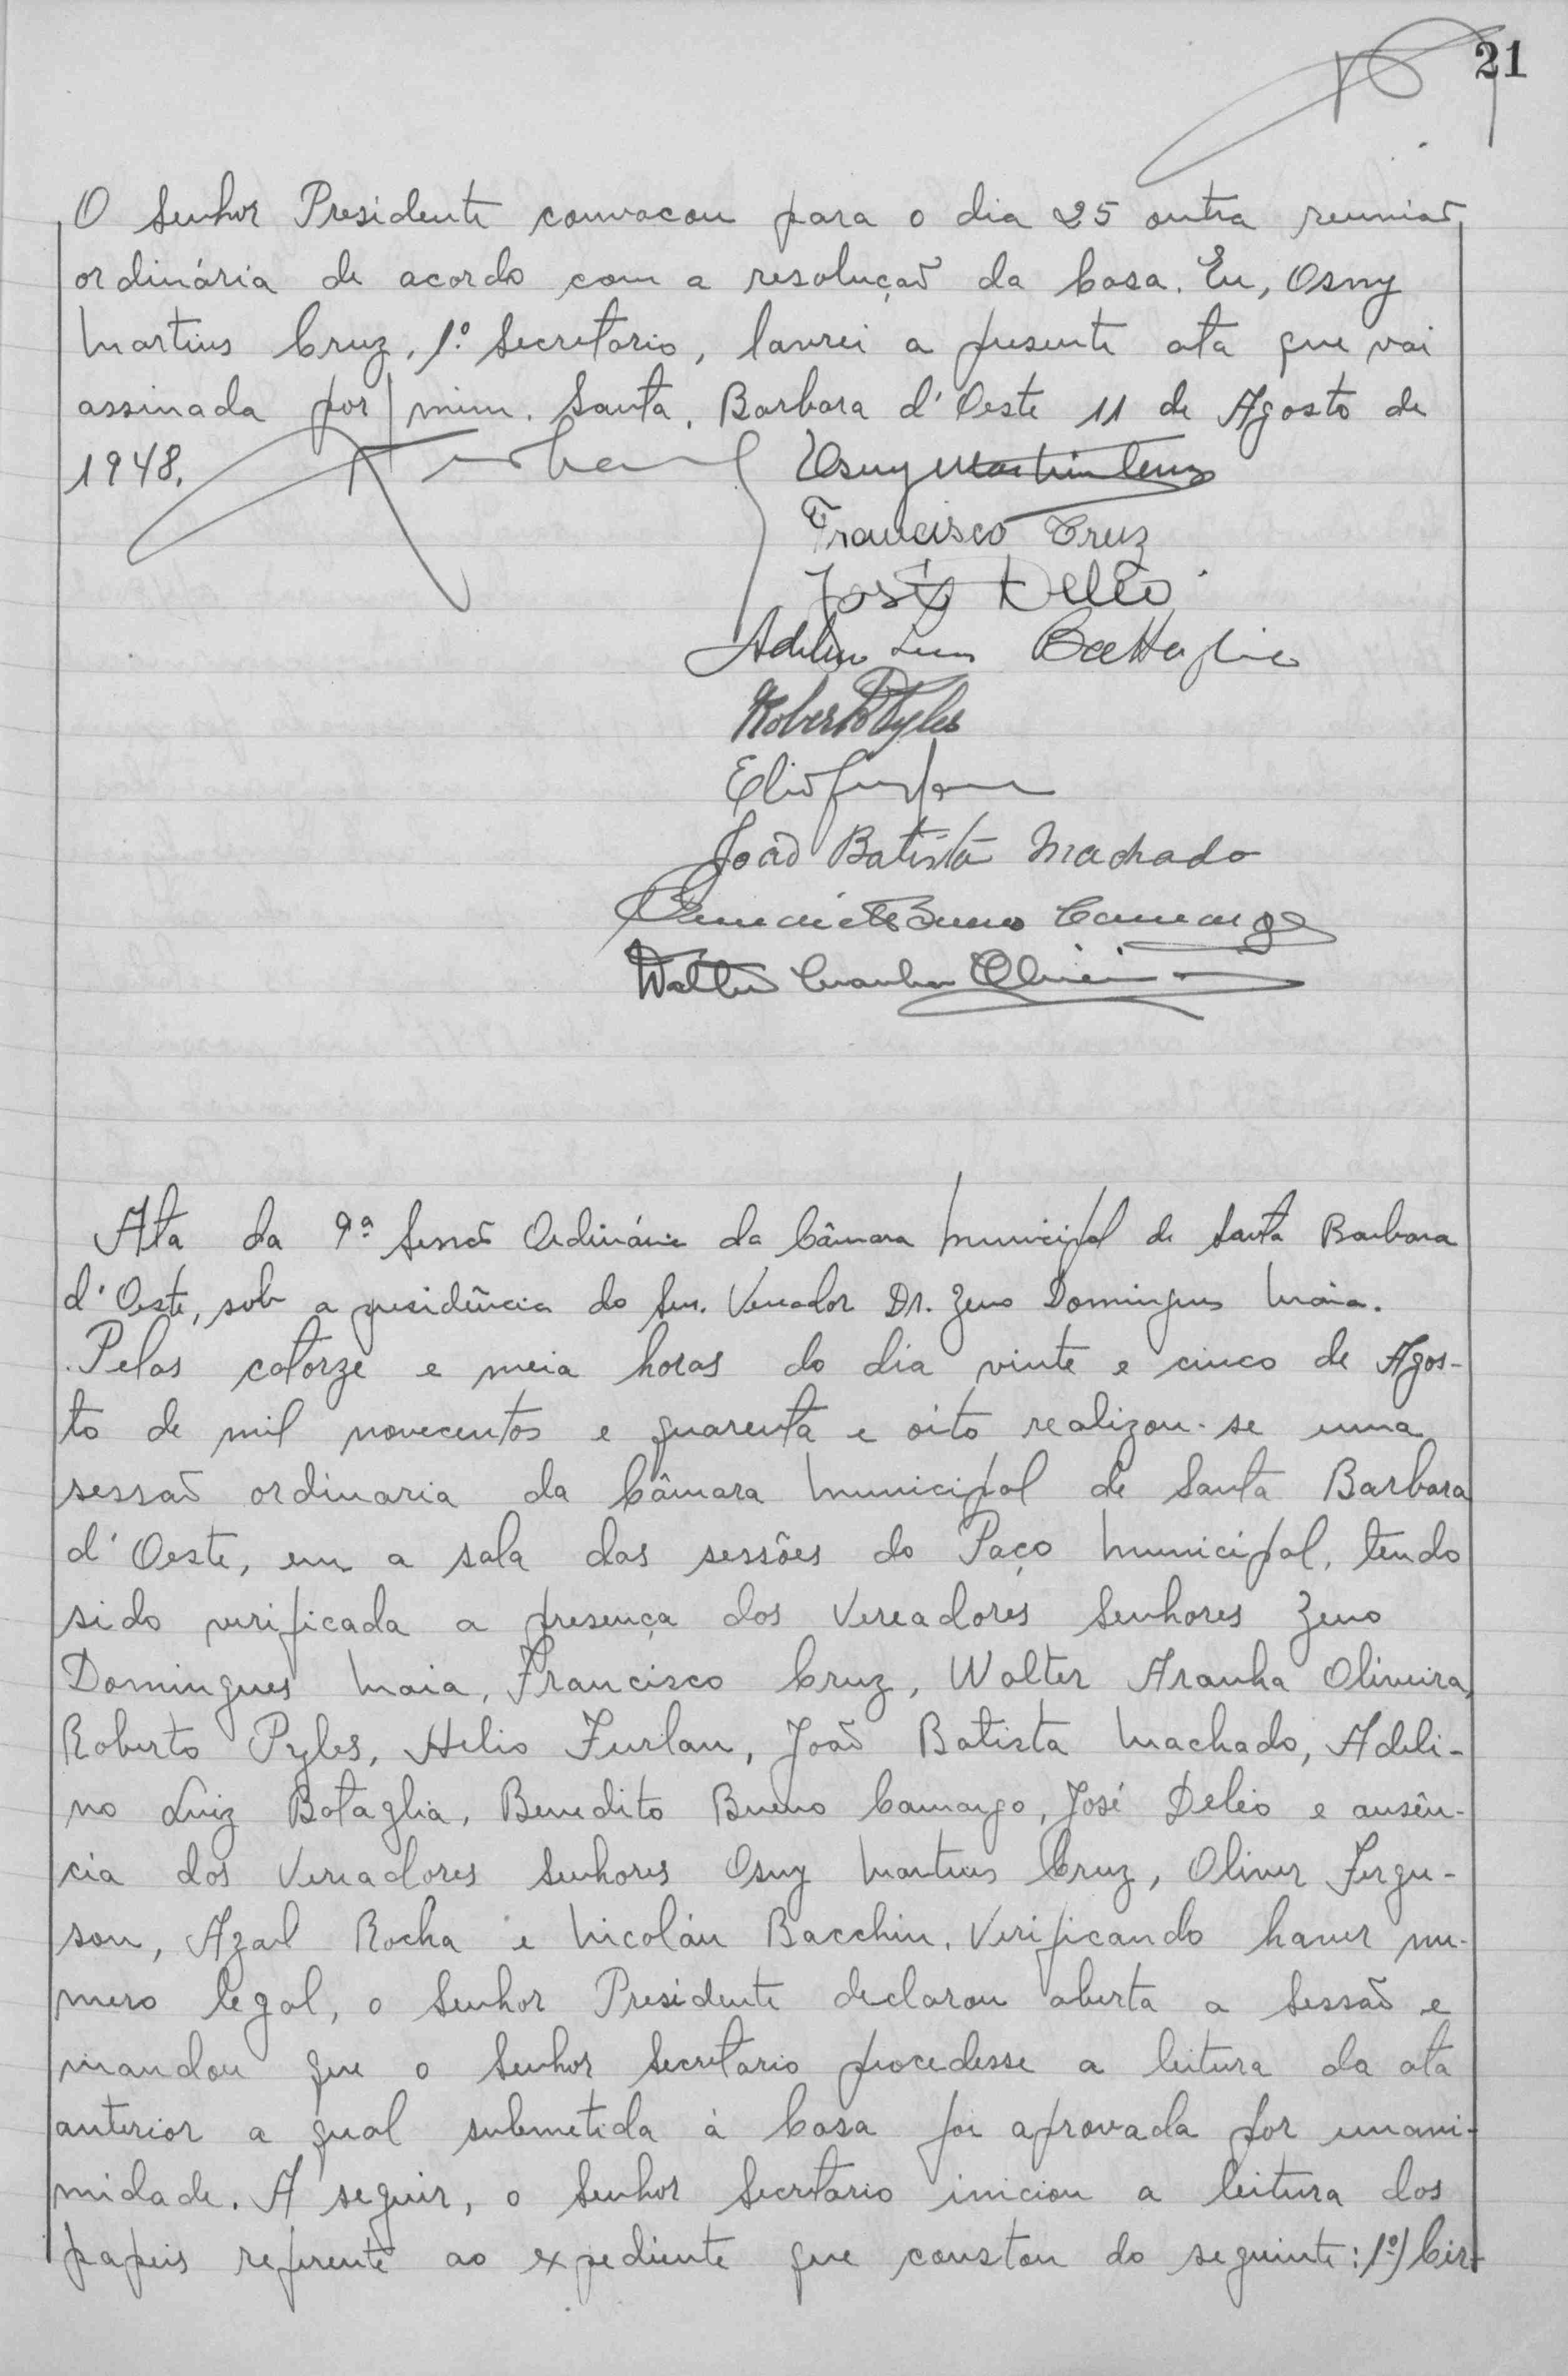 21
O Senhor Presidente convocou para o dia 25 outra reunião
ordinária de acordo com a resolução da Casa. Eu, Osny
Martins Cruz, 1º Secretario, lavrei a presente ata que vai
assinada por mim. Santa. Barbara d'Oeste 11 de Agosto de
1948.
Osny Martins Cruz
Francisco Cruz
José Delêo
Adelino Luiz Battaglia
Roberto Pyles
Elio Furlan
João Batista Machado
Benedicto Bueno Camargo
Walter Aranha Oliveira
Ata da 9ª Sessão Ordinária da Câmara Municipal de Santa Barbara
d'Oeste, sob a presidência do Snr. Vereador Dr. Zeno Domingues Maia.
Pelas catorze e meia horas do dia vinte e cinco de Agos-
to de mil novecentos e quarenta e oito realizou-se uma
sessão ordinaria da Câmara Municipal de Santa Barbara
d'Oeste, em a sala das sessões do Paço Municipal, tendo
sido verificada a presença dos Vereadores Senhores Zeno
Domingues Maia, Francisco Cruz, Walter Aranha Oliveira,
Roberto Pyles, Helio Furlan, João Batista Machado, Adeli-
no Luiz Bataglia, Benedito Bueno Camargo, José Deléo e ausên-
cia dos Vereadores Senhores Osny Martins Cruz, Oliver Fergu-
son, Azael Rocha e Nicoláu Bacchin. Verificando haver nu-
mero legal, o Senhor Presidente declarou aberta a Sessão e
mandou que o Senhor Secretario procedesse a leitura da ata
anterior a qual submetida á Casa foi aprovada por unani-
midade. A seguir, o Senhor Secretario iniciou a leitura dos
papeis referente ao expediente que constou do seguinte: 1º) Cir-